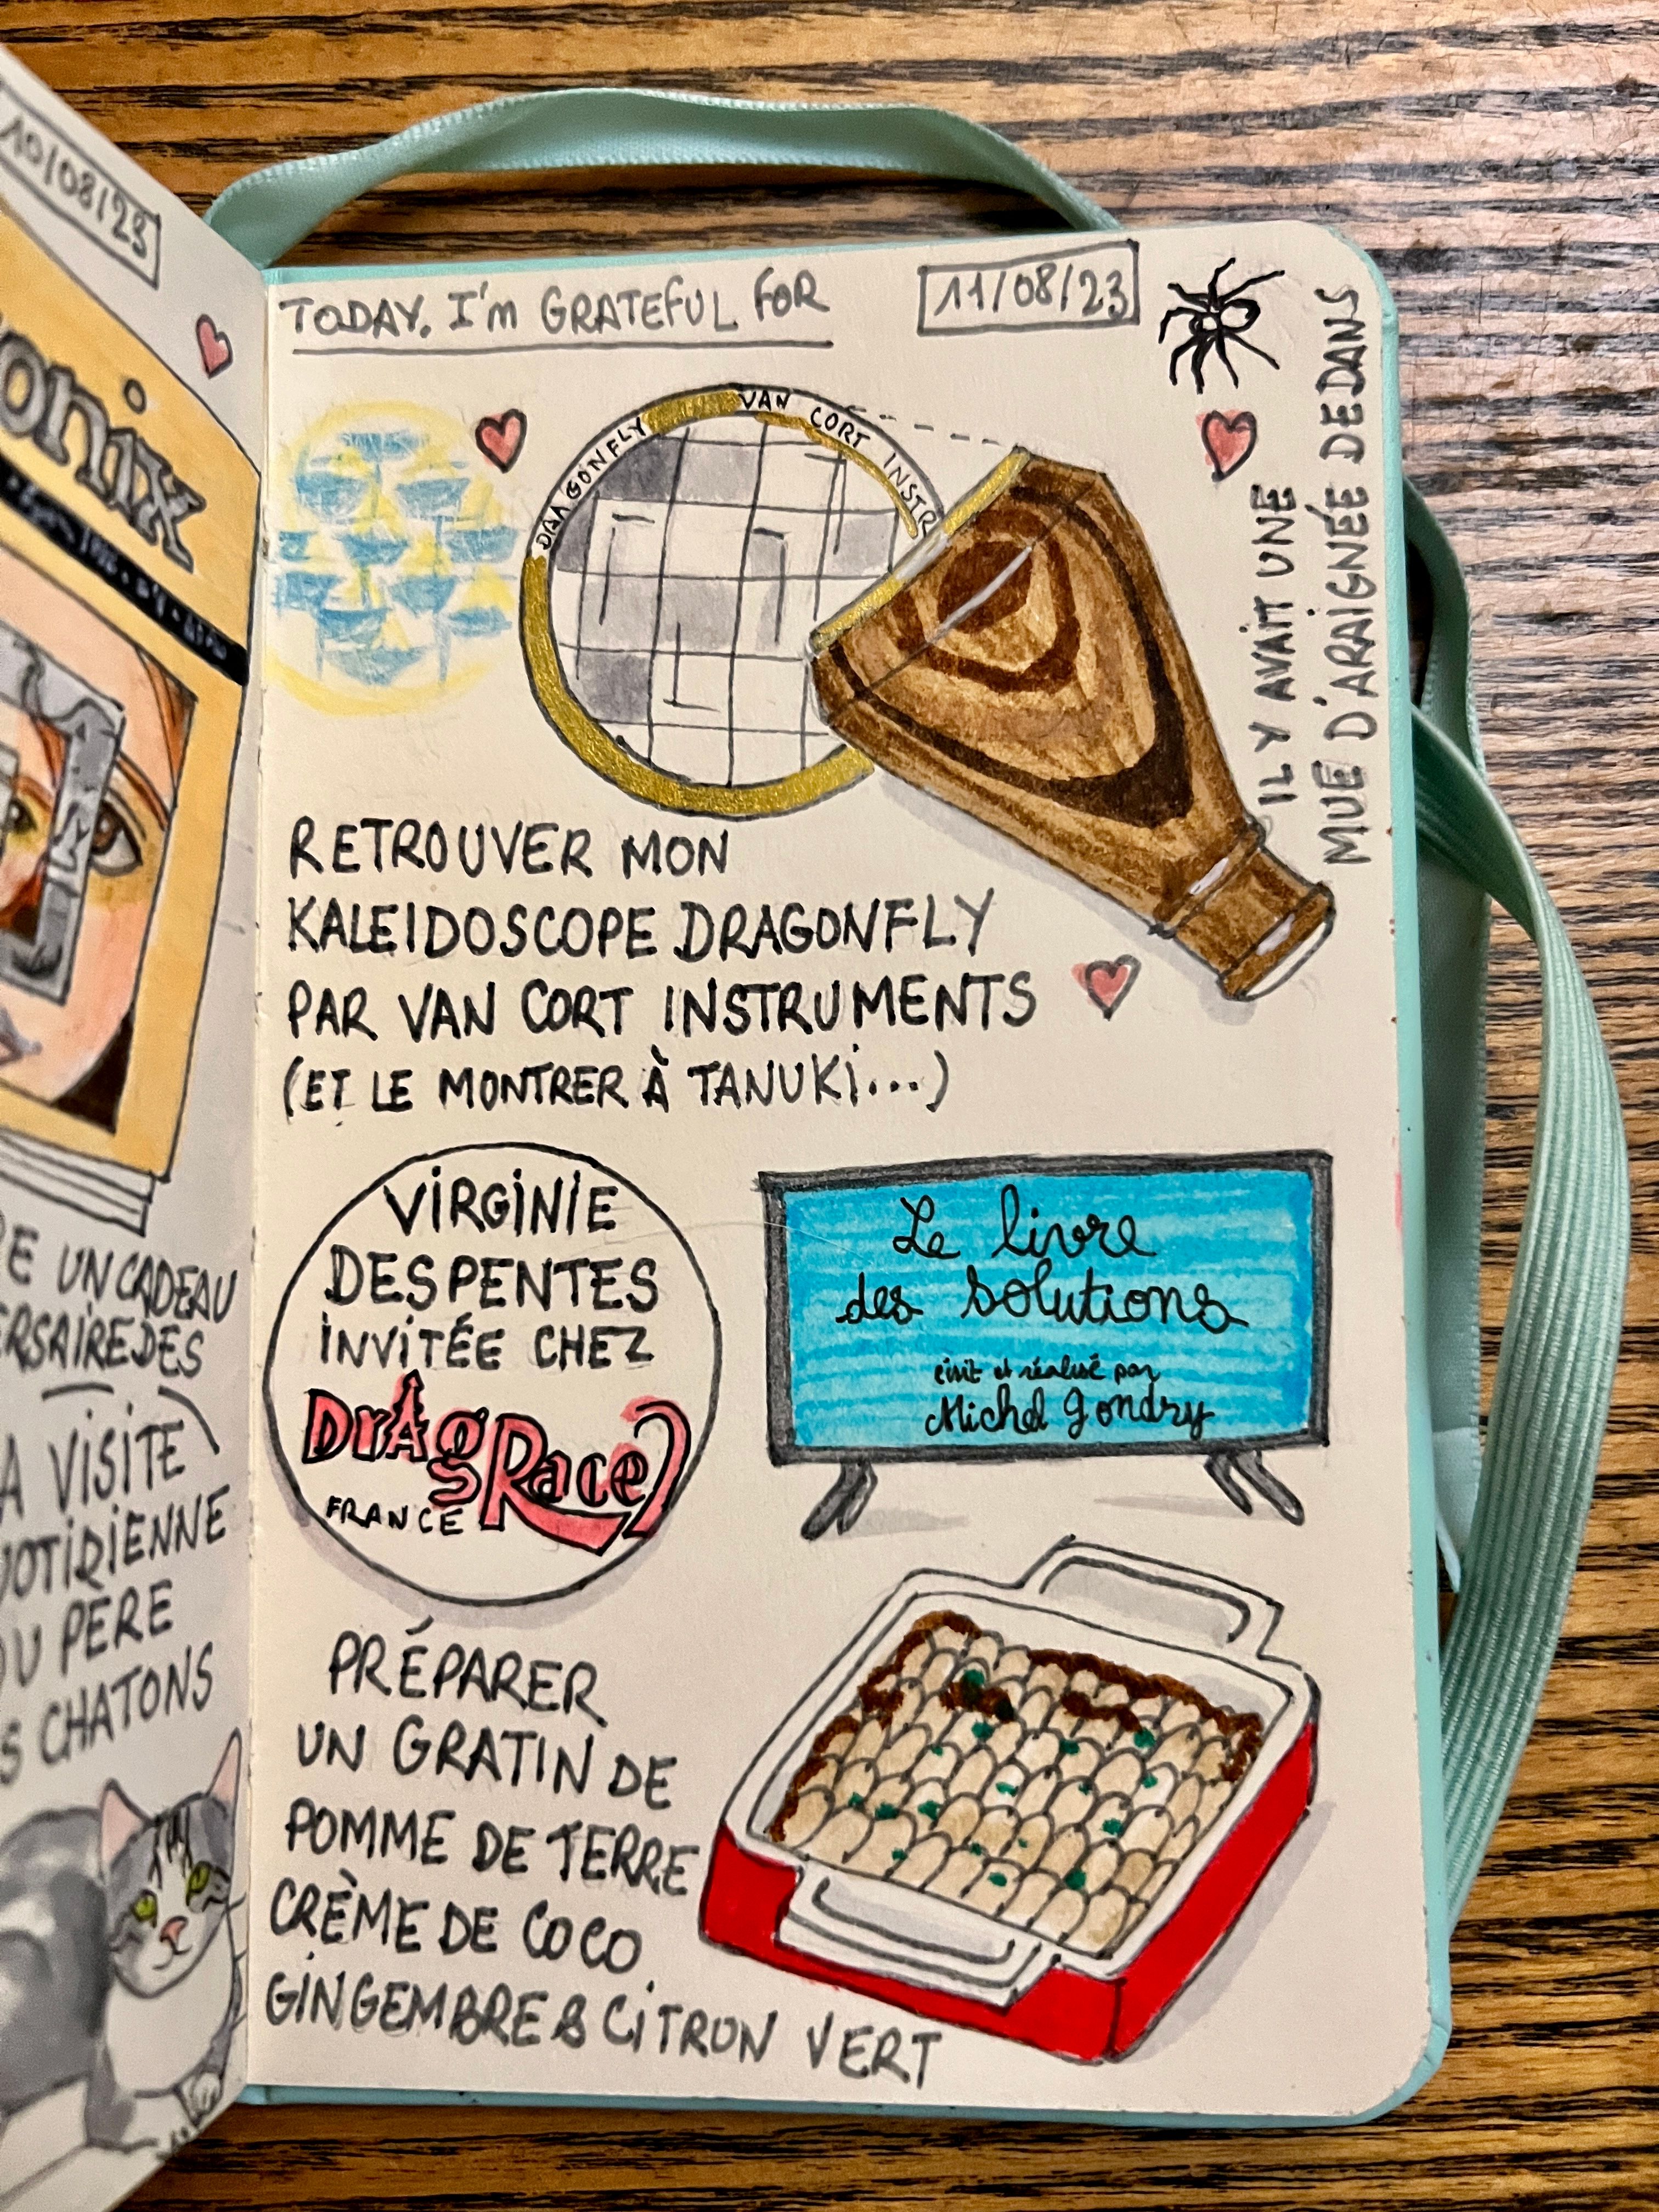 10/08/23
onix
E UN CADEAU
ERSAIRE DES
A VISITE
UOTIDIENNE
DU PÈRE
S CHATONS
TODAY, I'm GRATEFUL FOR
11/08/23
DRAGONFLY VAN CORT INSTR
IL Y AVAIT UNE
MUE D'ARAIGNÉE DEDANS
RETROUVER MON
KALEIDOSCOPE DRAGONFLY
PAR VAN CORT INSTRUMENTS
(ET LE MONTRER À TANUKI...)
VIRGINIE
DESPENTES
INVITÉE CHEZ
DrAg Race
FRANCE
Le livre
des solutions
écrit et réalisé par
Michel Gondry
PRÉPARER
UN GRATIN DE
POMME DE TERRE
CRÈME DE COCO,
GINGEMBRE & CITRON VERT